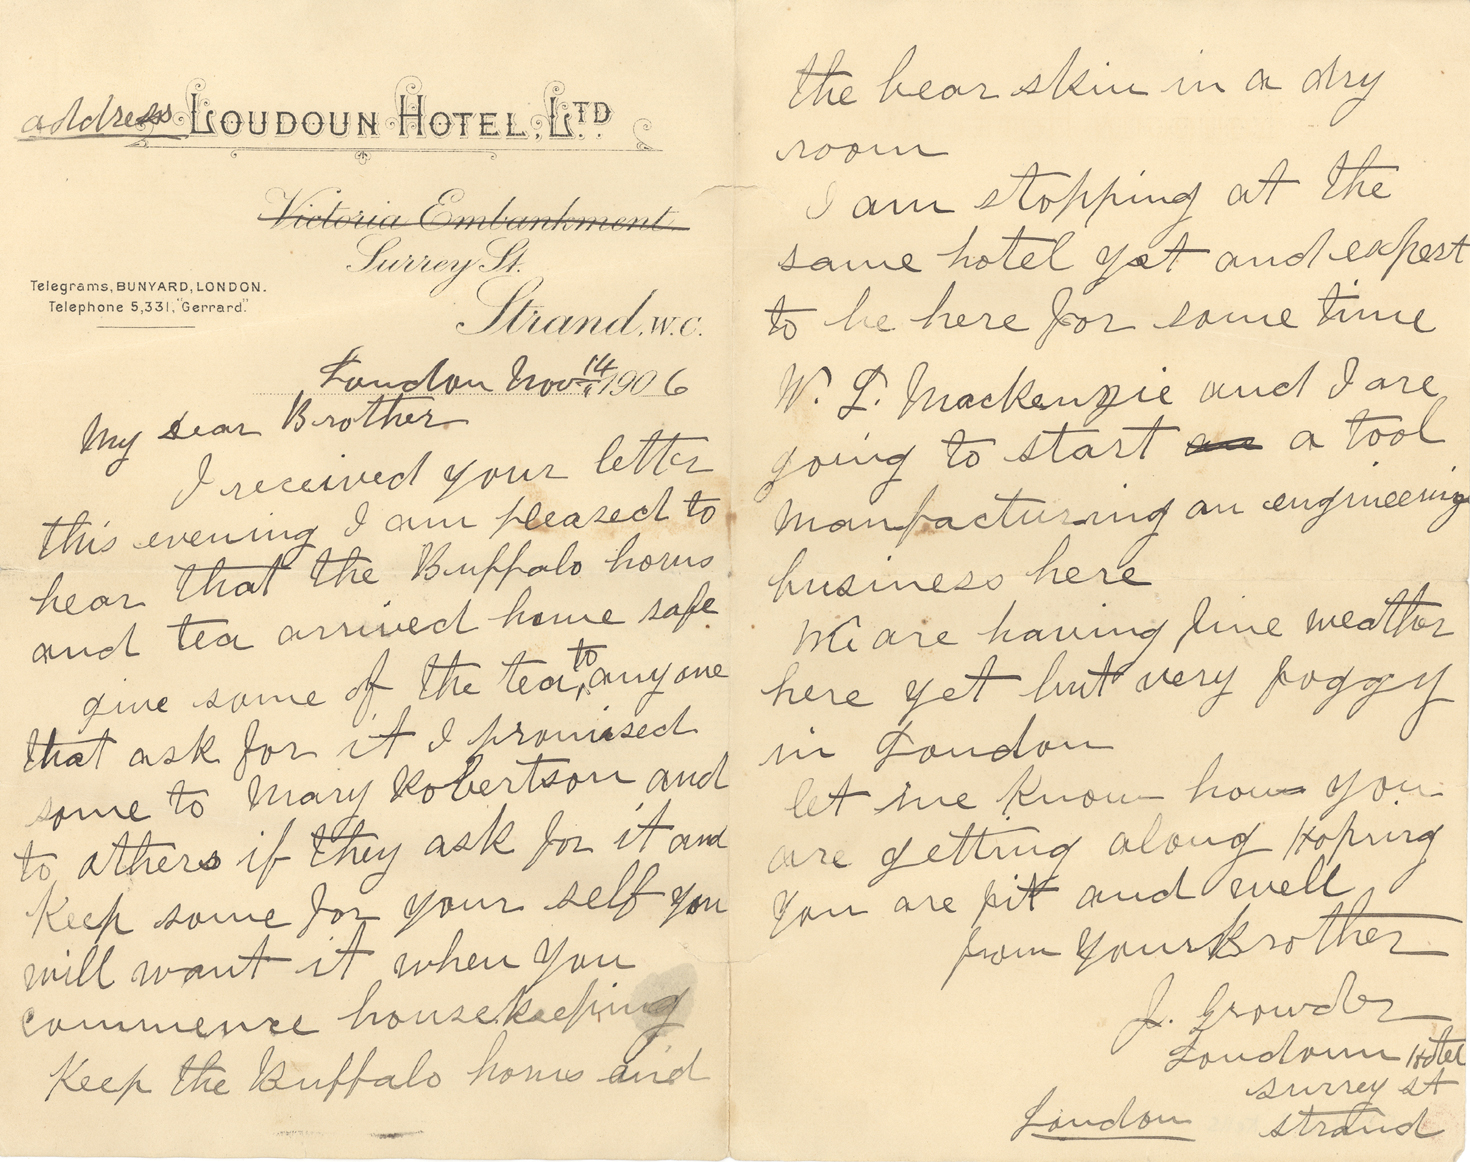 address LOUDOUN HOTEL, LTD
Victoria Embankment.
Surrey St.
Telegrams, BUNYARD, LONDON.
Telephone 5,331, "Gerrard".
Strand, W.C.
London Nov 14 1906
My dear Brother
I received your letter
this evening I am pleased to
hear that the Buffalo horns
and tea arrived home safe
give some of the tea, to anyone
that ask for it I promised
some to Mary Robertson and
to others if they ask for it and
Keep some for your self you
will want it when you
commence housekeeping
Keep the Buffalo horns and
the bear skin in a dry
room
I am stopping at the
same hotel yet and expect
to be here for some time
W. L. Mackenzie and I are
going to start a tool
manfacturing an engineering
business here
We are having fine weather
here yet but very foggy
in London
let me know how you
are getting along Hoping
you are fit and well
from Your Brother
J. Growder
Loudoun Hotel
surrey st
strand
London